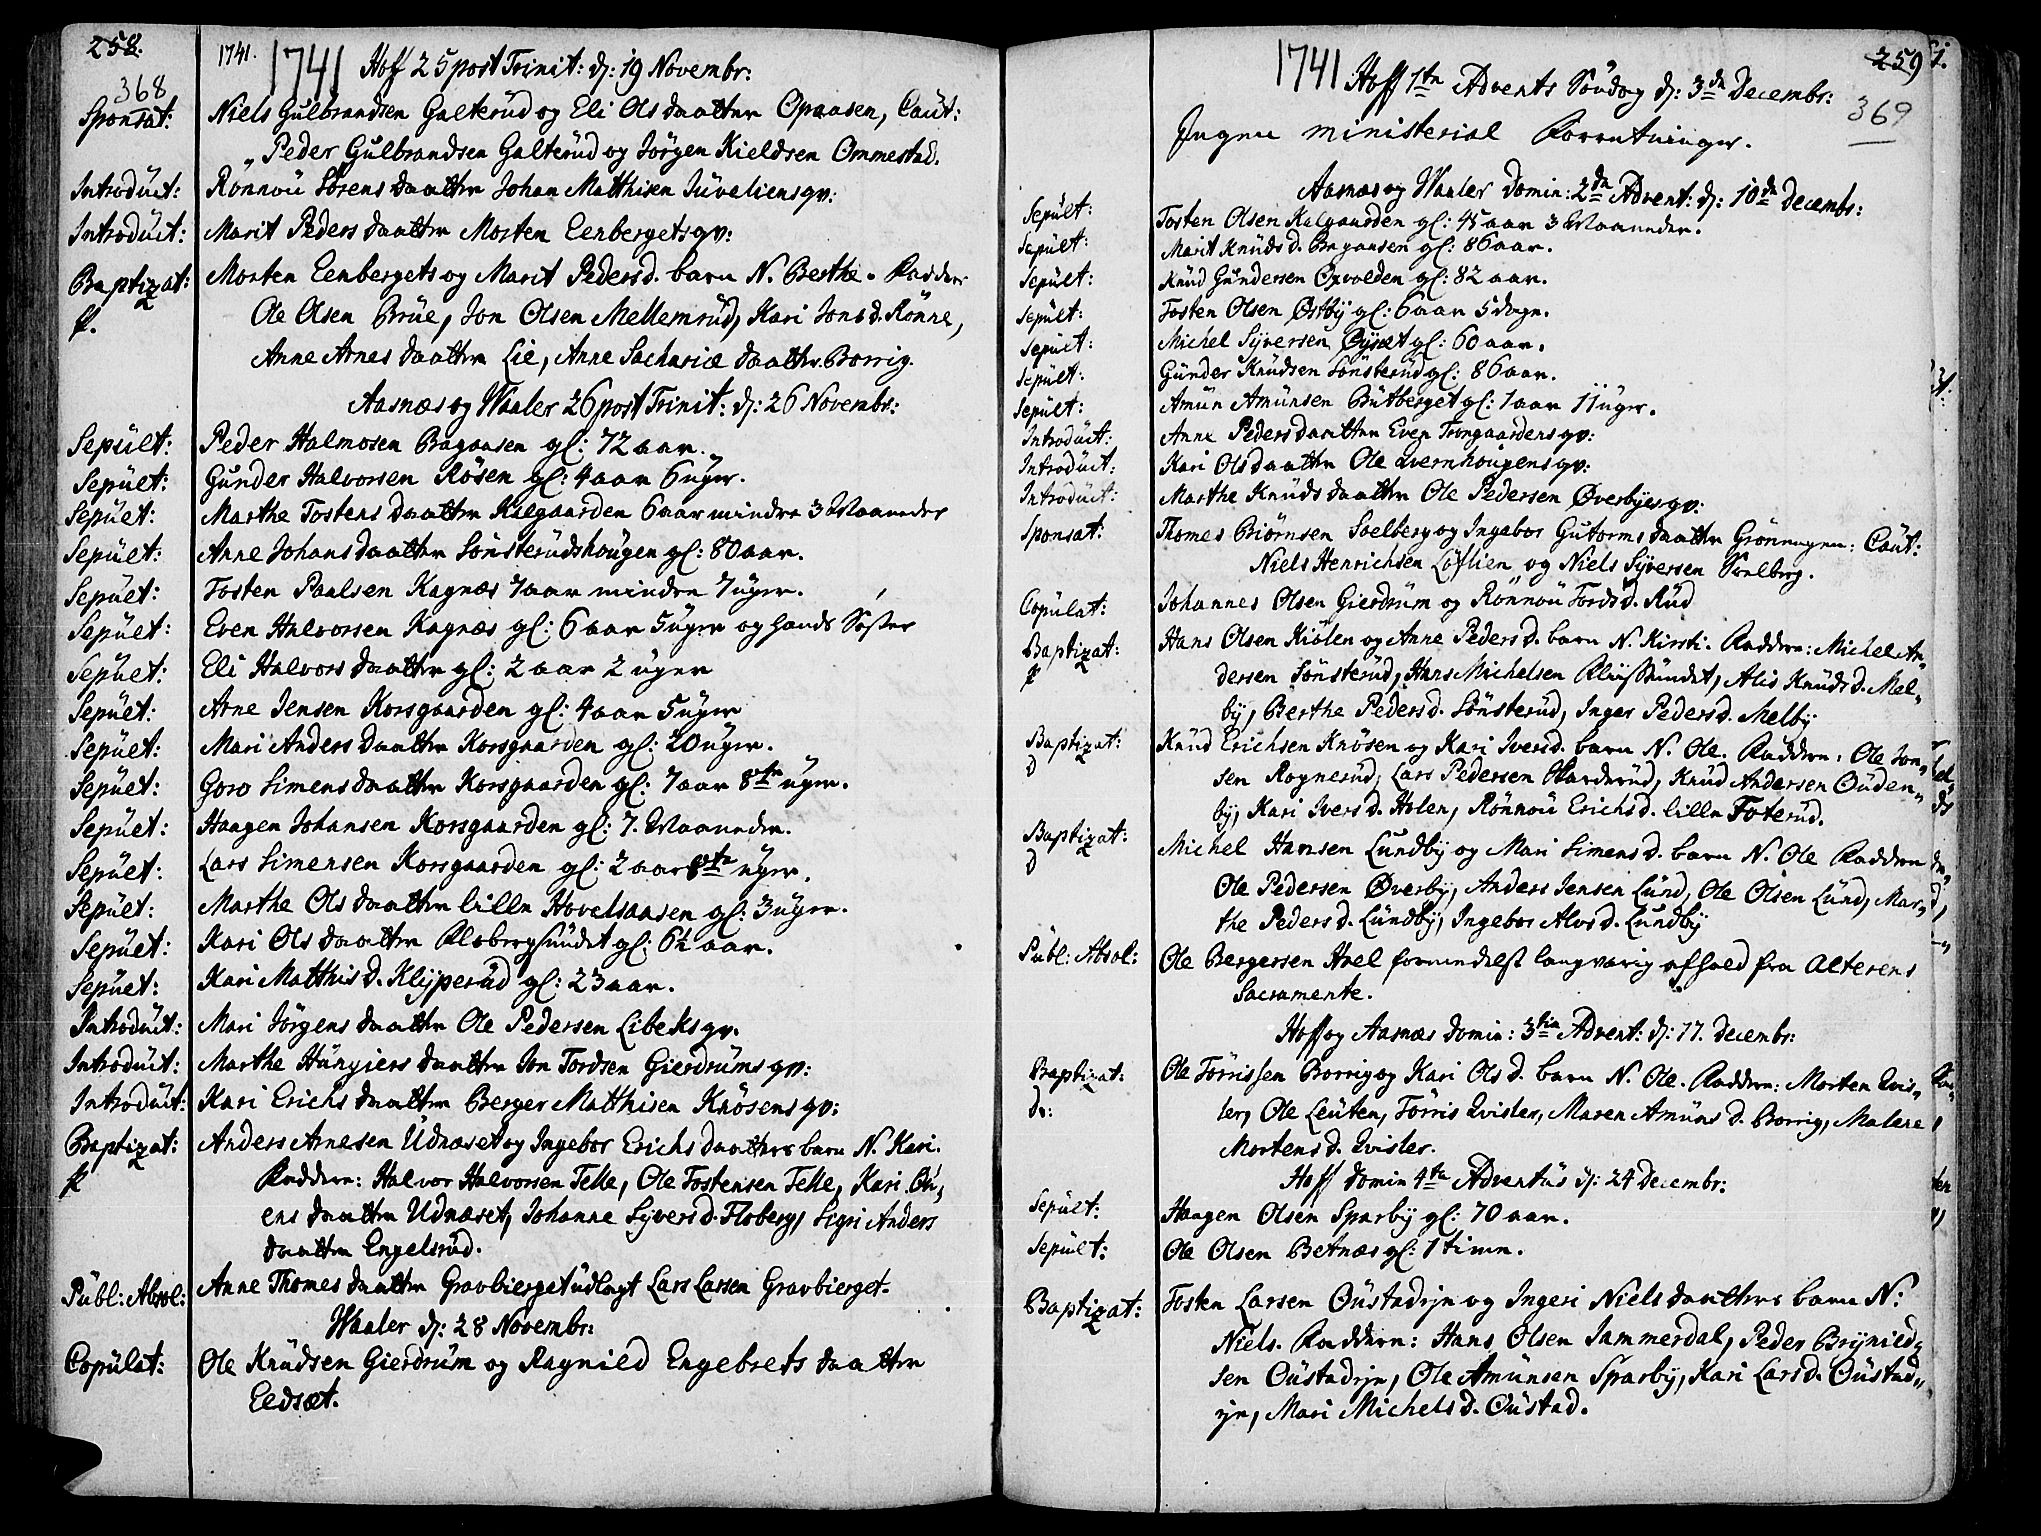 258.
368
1741. 1741 Hof 25 post Trinit: d: 19 Novembr:
Sponsat: Niels Gulbrandsen Galterüd og Eli Olsdaatter Opaasen, Caüt:
Peder Gülbrandsen Galterüd og Jörgen Kieldsen Ommestad.
Introdüct: Rönnoü Sörensdaatter Johan Matthisen Jüveliens qv:
Introdüct: Marit Pedersdaatter Morten Eenbergets qv:
Baptizat: Morten Eenbergets og Marit Pedersd. barn N. Berthe. Faddere
f. Ole Olsen Brüe, Jon Olsen Mellemrüd, Kari Jonsd. Rönne,
Anne Arnesdaatter Lie, Anne Sachariæ daatter Borrig.
Aasnæs og Waaler 26 post Trinit: d: 26 Novembr:
Sepült: Peder Halmosen Bragaasen gl: 72 aar.
Sepült: Gunder Halvorsen Rösen gl: 4 aar 6 uger.
Sepült: Marthe Tostensdaatter Kalgaarden 6 aar mindre 3 Maaneder
Sepült: Anne Johansdaatter Sönsterüdshoügen gl: 80 aar.
Sepült: Tosten Paulsen Kagnæs 7 aar mindre 7 uger.
Sepült: Even Halvorsen Kagnæs gl: 6 aar 5 üger og hands Söster
Sepült: Eli Halvorsdaatter gl: 2 aar 2 uger
Sepült: Arne Jensen Korsgaarden gl: 4 aar 5 uger
Sepült: Mari Andersdaatter Korsgaarden gl: 20 uger.
Sepült: Goro Simensdaatter Korsgaarden gl: 7 aar 8te uger.
Sepült: Haagen Johansen Korsgaarden gl: 7. Maaneder.
Sepült: Lars Simensen Korsgaarden gl: 2 aar 8te uger.
Sepült: Marthe Olsdaatter lille Hovelsaasen gl: 3 uger.
Sepült: Kari Olsdaatter Flobergsündet gl: 6½ aar.
Sepült: Kari Matthisd. Klyperüd gl: 23 aar.
Introdüct: Mari Jörgensdaatter Ole Pedersen Libeks qv.
Introdüct: Marthe Hüngiersdaatter Jon Tordsen Gierdrüms qv:
Introdüct: Kari Erichsdaatter Berger Matthisen Knösens qv:
Baptizat: Anders Arnesen Üdnæset og Ingebor Erichsdaatters barn N. Kari.
f Faddere: Halvor Halvorsen Telle, Ole Tostensen Telle, Kari
ensdaatter Udnæset, Johanne Syversd. Floberg, Sigri Anders
daatter Engelsrüd.
Pübl: Absol: Anne Thomesdaatter Gravbierget üdlagt Lars Larsen Gravbierget.
Waaler d: 28 Novembr:
Copülat: Ole Knüdsen Gierdrüm og Ragnild Engebretsdaatter
Eedsæt.
259
369
1741 Hoff 1te Advents Söndag d: 3de Decembr:
Ingen ministerial Forretninger.
Aasnæs og Waaler Domin: 2da Advent: d: 10de Decembr:
Sepült: Tosten Olsen Kalgaarden gl: 45 aar 3 Maaneder.
Sepült Marit Knüdsd. Bragaasen gl: 86 aar.
Sepült: Knüd Gündersen Oxvolden gl: 82 aar.
Sepült: Tosten Olsen Østby gl: 6 aar 5 dage.
Sepült: Michel Syversen Øysæt gl: 60 aar.
Sepült: Günder Knüdsen Sönsterüd gl: 86 aar.
Sepült: Amün Amünsen Bütberget gl: 1 aar 11 uger.
Introdüct: Anne Pedersdaatter Even Trongaardens qv:
Introdüct: Kari Olsdaatter Ole Qvernhougens qv:
Introdüct: Marthe Knüdsdaatter Ole Pedersen Øverbyes qv:
Sponsat: Thomes Biörnsen Soelberg og Ingebor Gutormsdaatter Grönnengen: Caüt:
Niels Henrichsen Löflien og Niels Syversen Soelberg.
Copülat: Johannes Olsen Gierdrüm og Rönnoü Tordsd. Rüd
Baptizat: Hans Olsen Kiölen og Anne Pedersd. barn N. Kirsti. Faddere: Michel An„
f dersen Sönsterüd, Hans Michelsen Flüssündet, Alis Knüdsd. Mel„
by, Berthe Pedersd. Sönsterüd, Inger Pedersd. Melby
Baptizat: Knüd Erichsen Knösen og Kari Iversd. barn N. Ole. Faddere: Ole Jon„
D sen Rognerüd, Lars Pedersen Harderüd, Knüd Andersen Ouden„
by, Kari Iversd. Holen, Rönnoü Erichsd. lille Foterüd.
Baptizat: Michel Hansen Lundby og Mari Simensd. barn N. Ole Faddere
D Ole Pedersen Øverby, Anders Jensen Lünd, Ole Olsen Lünd, Mar„
the Pedersd. Lündby, Ingebor Alvsd. Lundby
Pübl: Absol: Ole Bergersen Hoel formedelst langvarig afhold fra Alterens
Sacramente.
Hoff og Aasnæs Domin: 3tia Advent: d: 17. Decembr:
Baptizat: Ole Törrissen Borrig og Kari Olsd. barn N. Ole. Faddere: Morten Qvis„
D: ler, Ole Leüten, Törris Qvisler, Maren Amünsd. Borrig, Malene
Mortensd. Qvisler.
Hoff Domin 4ta Adventüs d: 24 Decembr:
Sepült: Haagen Olsen Sparby gl: 70 aar.
Sepült: Ole Olsen Betnæs gl: 1 time.
Baptizat: Tosten Larsen Oüstadeje og Ingeri Nielsdaatters barn N.
Niels. Faddere: Hans Olsen Jammerdal, Peder Brynild„
sen Oüstadeje, Ole Amünsen Sparby, Kari Larsd. Oüstad„
eje, Mari Michelsd. Oüstad.